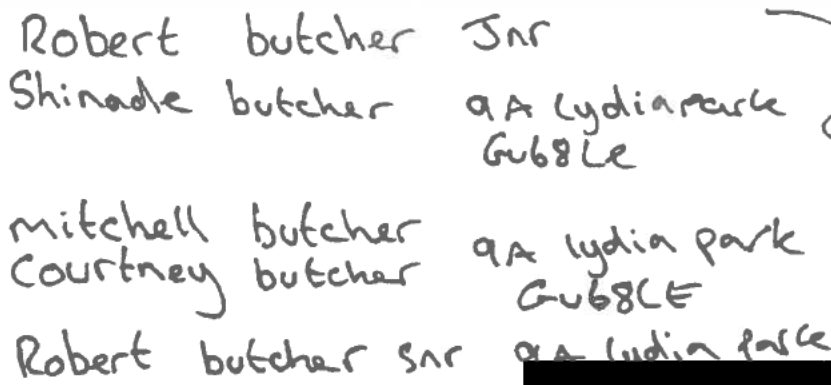 Robert butcher Jnr
Shinade butcher 9A lydia park
Gu68Le
mitchell butcher 9A lydia park
Courtney butcher Gu68LE
Robert butcher snr 9A lydia park